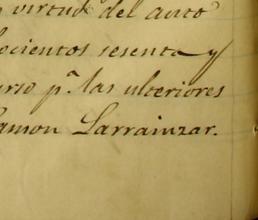 virtud del auto
ocientos sesenta y
urso pª las ulteriores
amon Larrainzar.